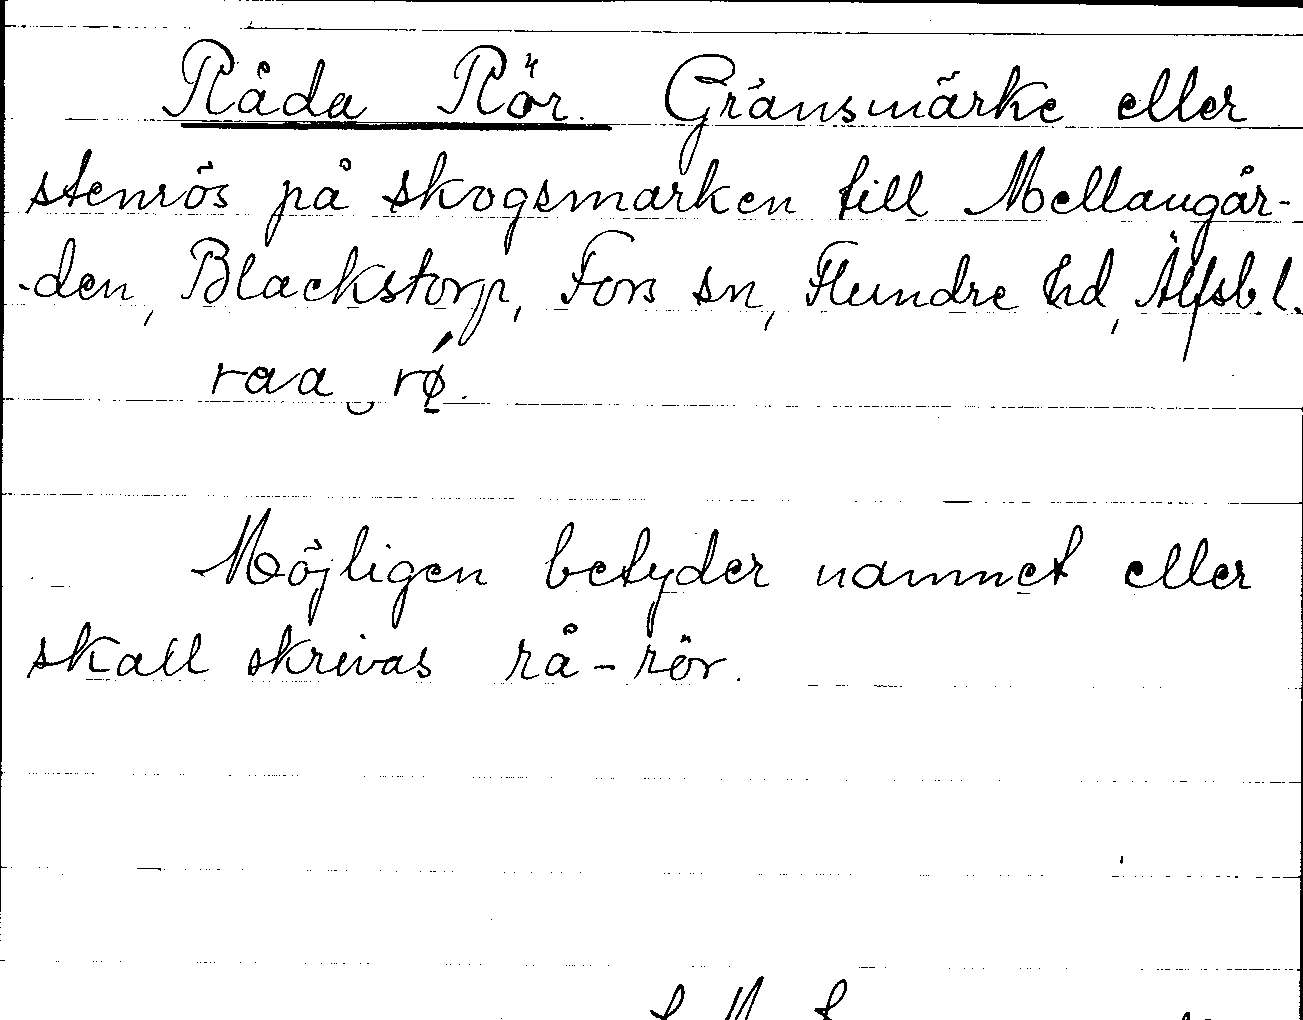 Råda Rör. Gränsmärke eller
stenrös på skogsmarken till Mellangår-
-den, Blackstorp, Fors sn, Flundre hd, Älfsb. l.
raa‿rǿ.
Möjligen betyder namnet eller
skall skrivas rå-rör.